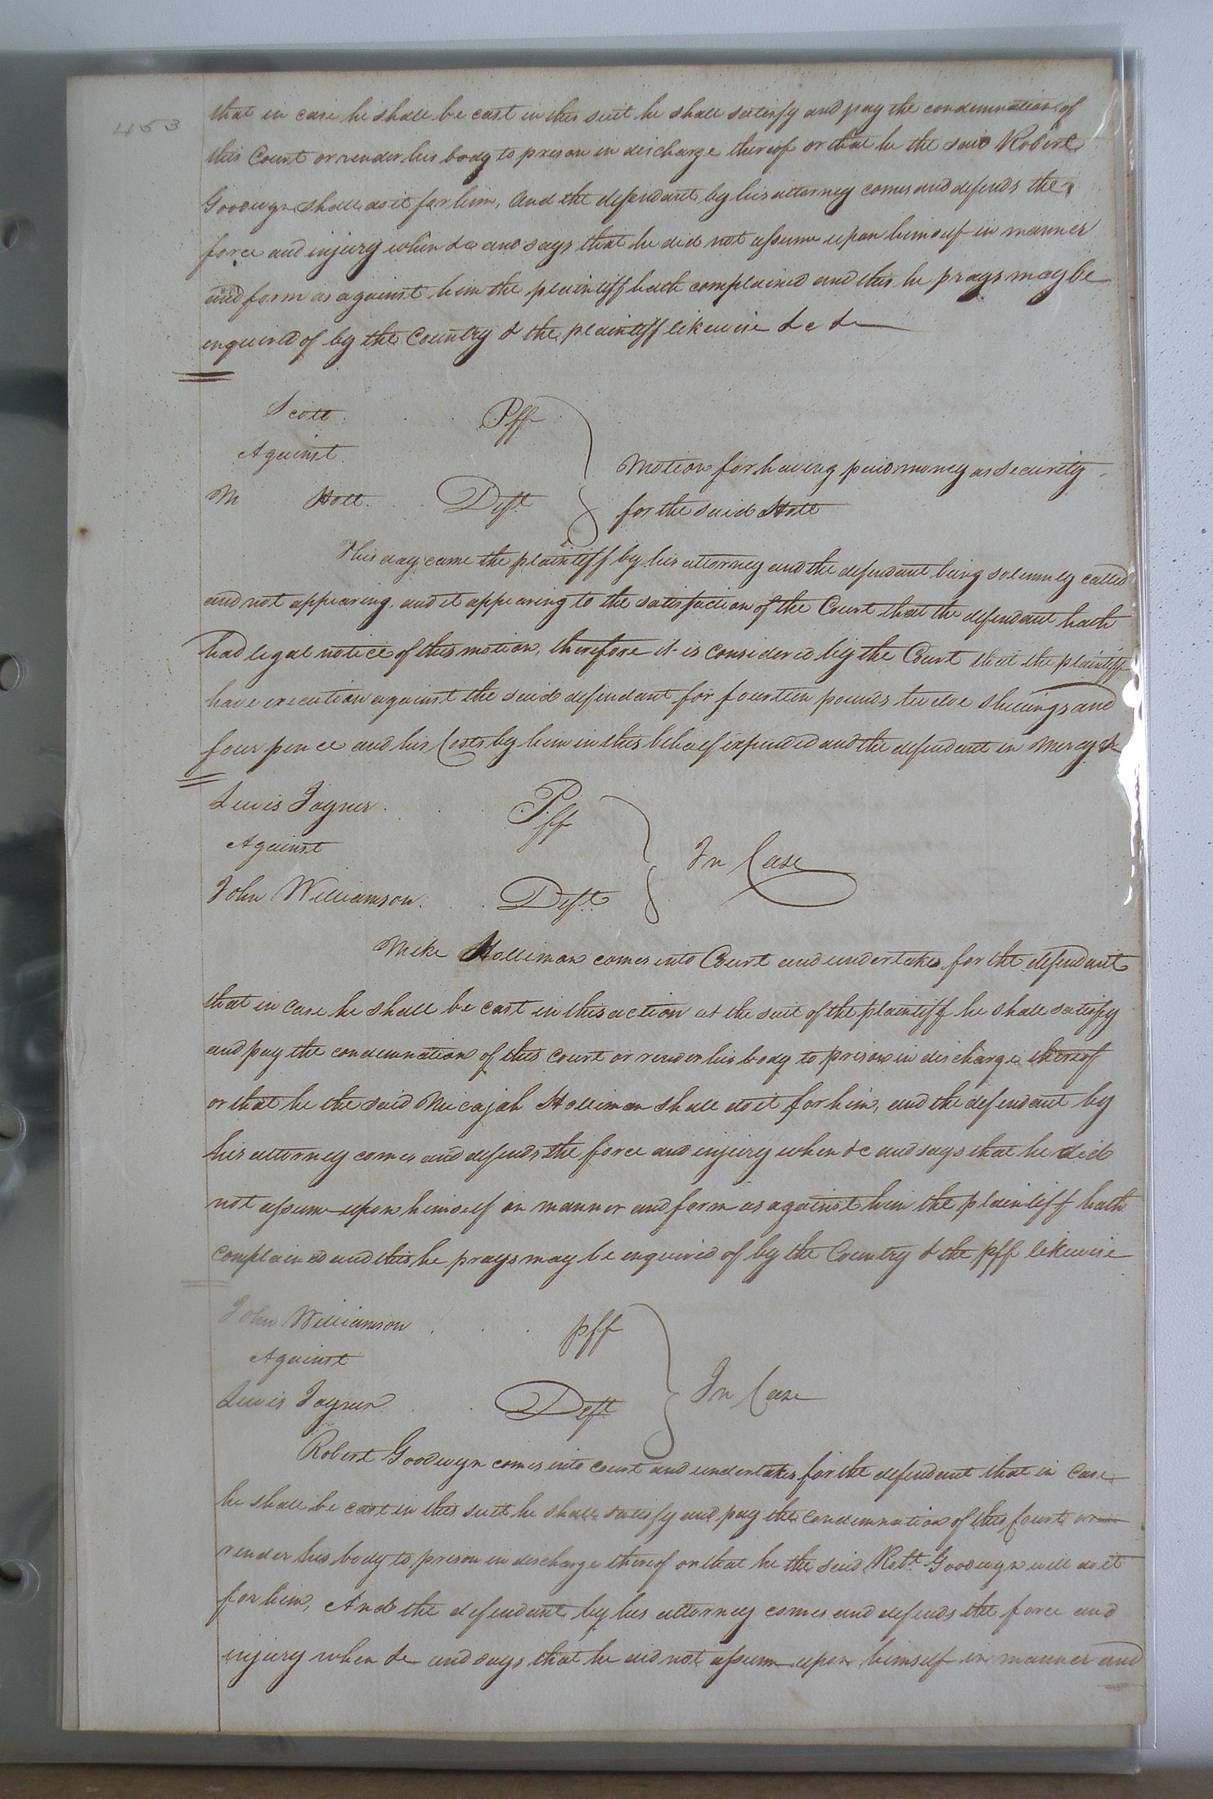 453
that in case he shall be cast in this suit he shall satisfy and pay the condemnation of
this Court or render his body to prison in discharge thereof or that he the said Robert
Goodwyn shall do it for him, And the defendant by his attorney comes and defends the
force and injury when &c and says that he did not assume upon himself in manner
and form as against him the plaintiff hath complained and this he prays may be
enquired of by the Country & the plaintiff likewise &c &c
Scott Pff
Against
M Holt Deft
Motion for having paid money as security
for the said Holt
This day came the plaintiff by his attorney and the defendant being solemnly called
and not appearing, and it appearing to the satisfaction of the Court that the defendant hath
had legal notice of this motion, therefore it is considered by the Court that the plaintiff
have execution against the said defendant for fourteen pounds twelve shillings and
four pence and his Costs by him in this behalf expended and the defendant in Mercy &c
Lewis Joyner Pff
Against
John Williamson Deft
In Case
Mike Holliman comes into Court and undertakes for the defendant
that in case he shall be cast in this action at the suit of the plaintiff he shall satisfy
and pay the condemnation of this court or render his body to prison in discharge thereof
or that he the said Micajah Holliman shall do it for him, and the defendant by
his attorney comes and defends the force and injury when &c and says that he did
not assume upon himself in manner and form as against him the plaintiff hath
complained and this he prays may be enquired of by the Country & the pff likewise
John Williamson pff
Against
Lewis Joyner Deft
In Case
Robert Goodwyn comes into court and undertakes for the defendant that in case
he shall be cast in this suit he shall satisfy and pay the condemnation of this Court or
render his body to prison in discharge thereof or that he the said Robt. Goodwyn will do it
for him, And the defendant by his attorney comes and defends the force and
injury when &c and says that he did not assume upon himself in manner and